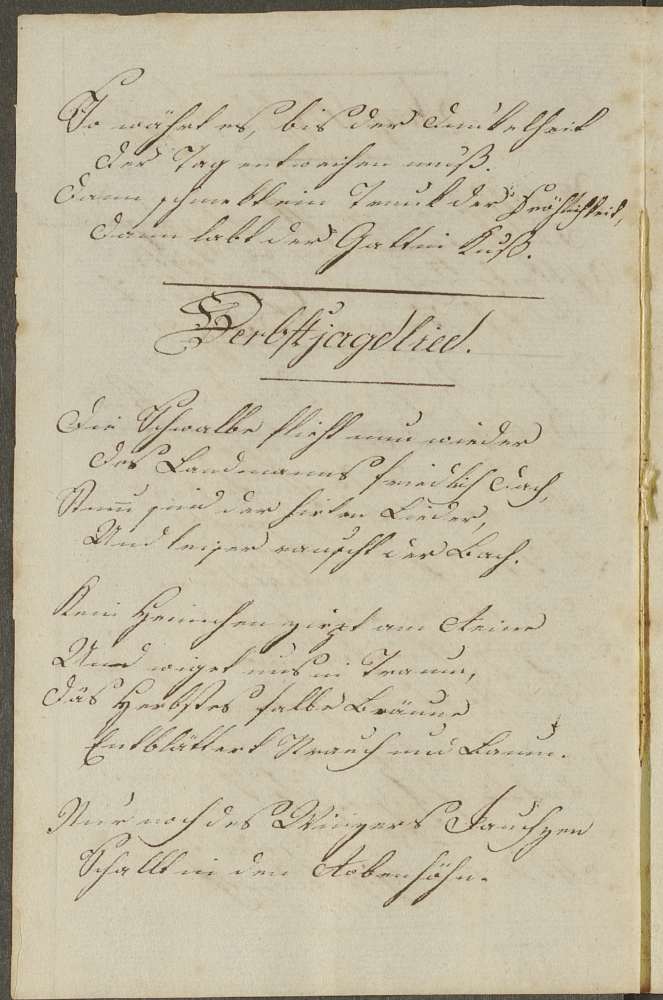 So währt es, bis der Dunkelheit
Der Tag entweichen muß.
Dann schmekt ein Trunk der Fröhlichkeit,
Dann labt der Gattin Kuß.
Herbstjagdlied.
Die Schwalbe flieht nun wieder
Des Landmanns friedlich Dach,
Stum̅ sind der Hirten Lieder,
Und leiser rauscht der Bach.
Kein Heimchen zirpt am Steine
Und wiget uns in Traum,
Des Herbstes falbe Bräune
Entblättert Strauch und Baum.
Nur noch des Winzers Jauchzen
Schallt in den Rebenhöhn.